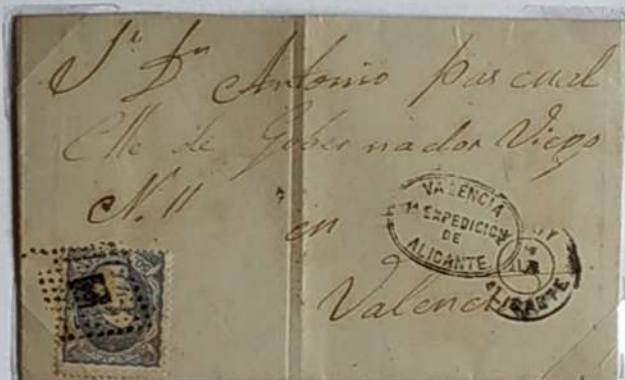 Sr Dn Antonio Pascual
Clle de Gobernador Viejo
N. 11
en
Valencia
VALENCIA
1ª EXPEDICION
DE
ALICANTE
ALICANTE